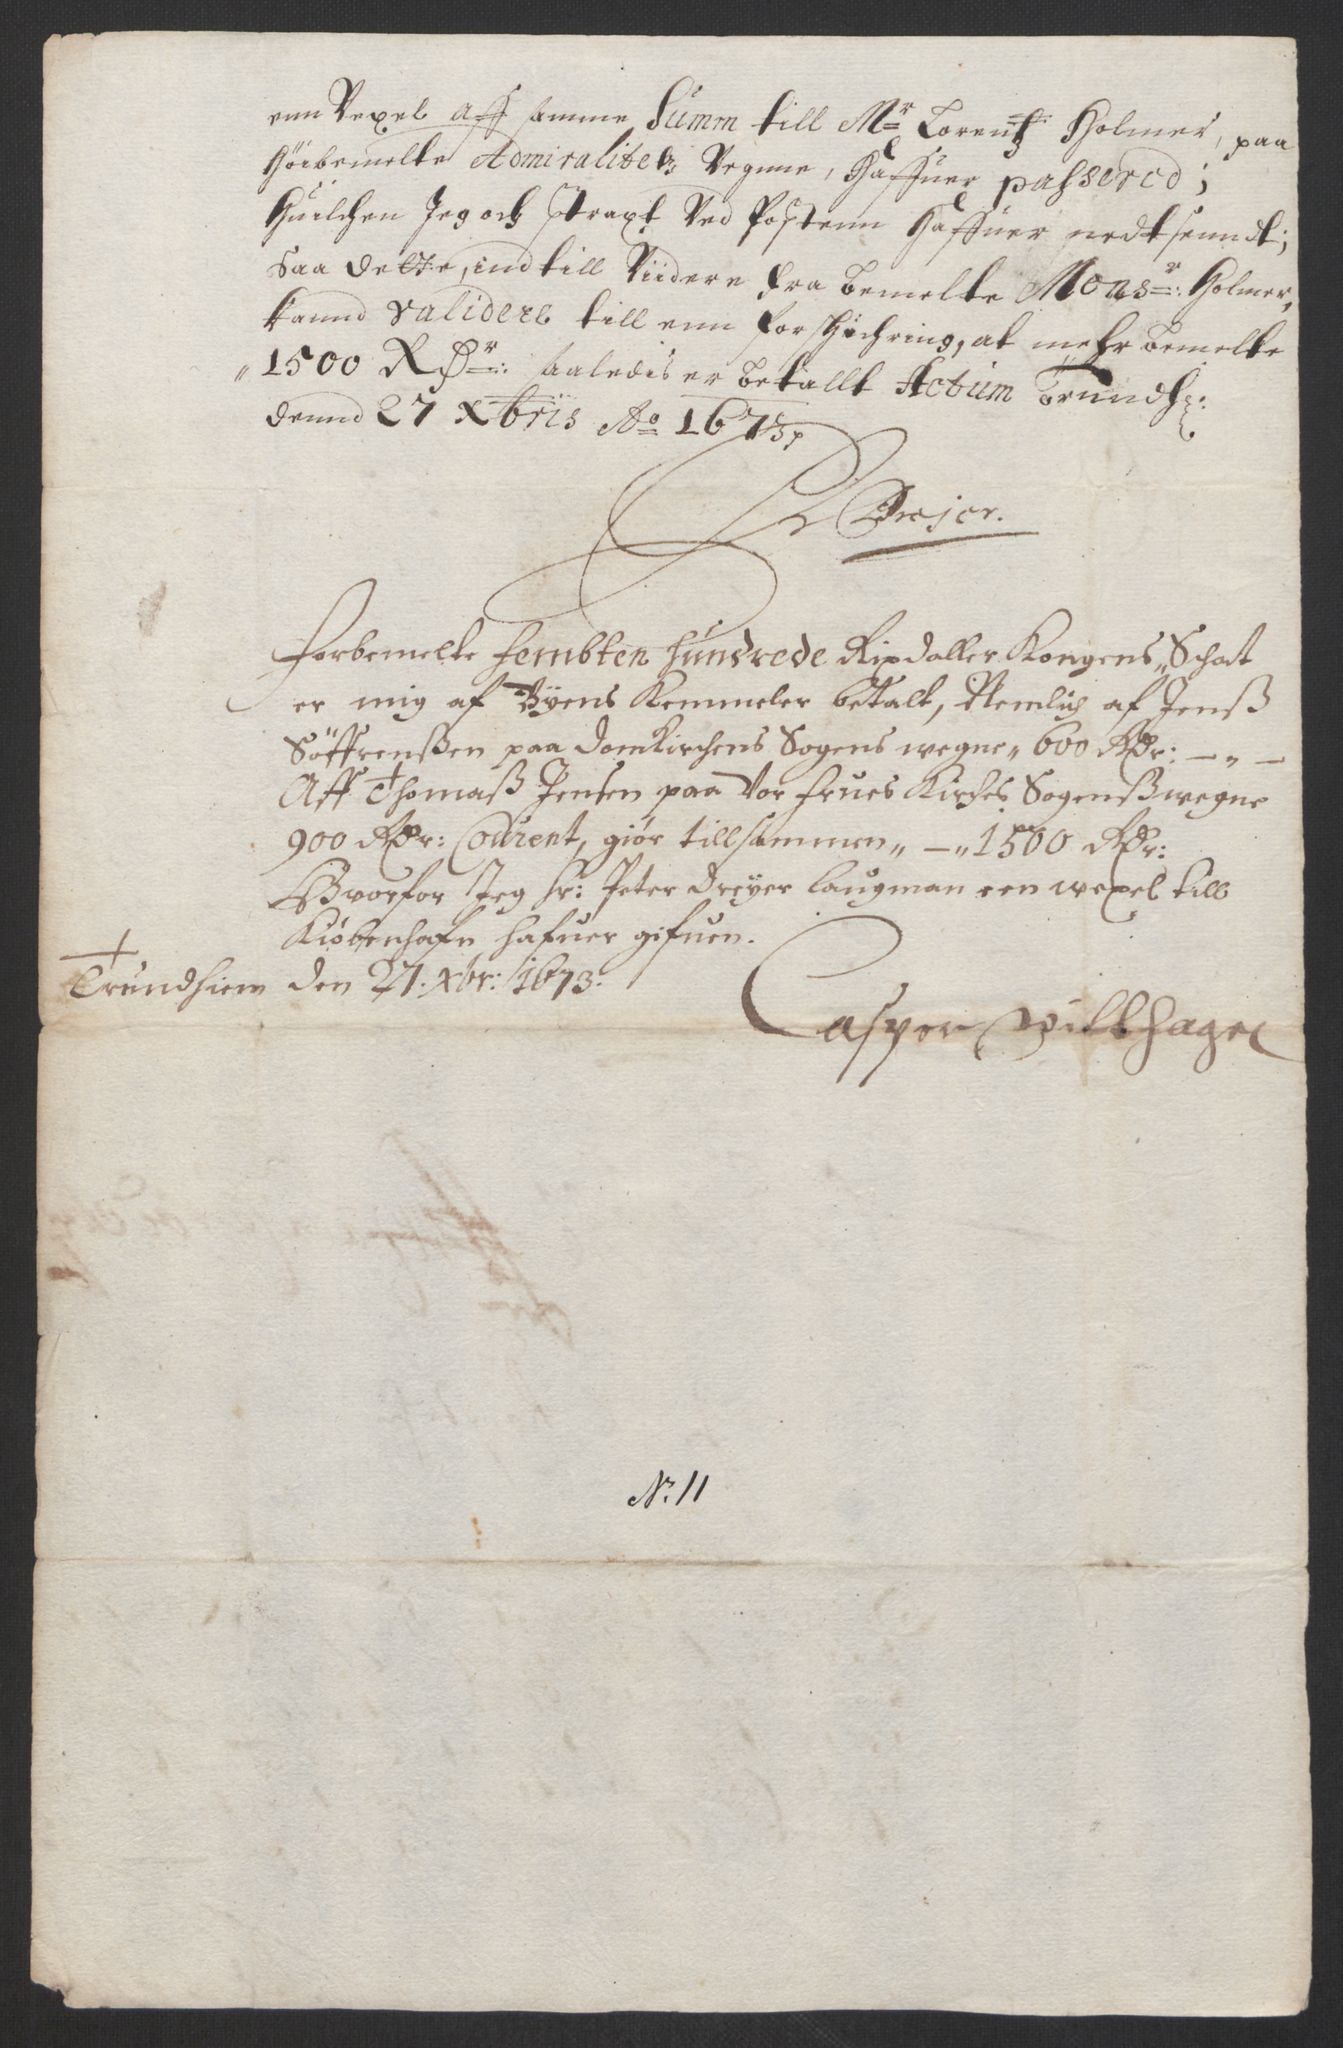 enn Vexel aff samme Summ till Mr Lorentz Holmer, paa
Höibemelte Admiralitetz Vegnne, Haffuer passered;
Huilchen Jeg och straxt Ved Postenn Haffuer nedtsenndt;
Saa dette, indtill Viidere fra bemelte Monsr: Holmer,
kannd validere till enn forsichring, at mehrbemelte
"1500 Rdr: saaledis er betallt Actum Trundh:
dennd 27 Xbris Ao 1673
Drejer.
Forbemelte fembten hundrede Rixdaller Kongens Schat
er mig af Byens Kemmeler betalt, Nemlich af Jenß
Söffrenßen paa domkirchens Sogens wegne" 600 Rdr: — " —
Aff Thomaß Jensen paa Vor frues Kirches Sogenß wegne
900 Rdr: Courent, giör tillsammen" — " 1500 Rdr:
Hvorfor Jeg hr: Peter Dreyer laugman een wexel till
Kiöbenhafn hafuer gifuen.
Trundhiem den 27. Xbr: 1673.
Casper Wilthagen
No. 11